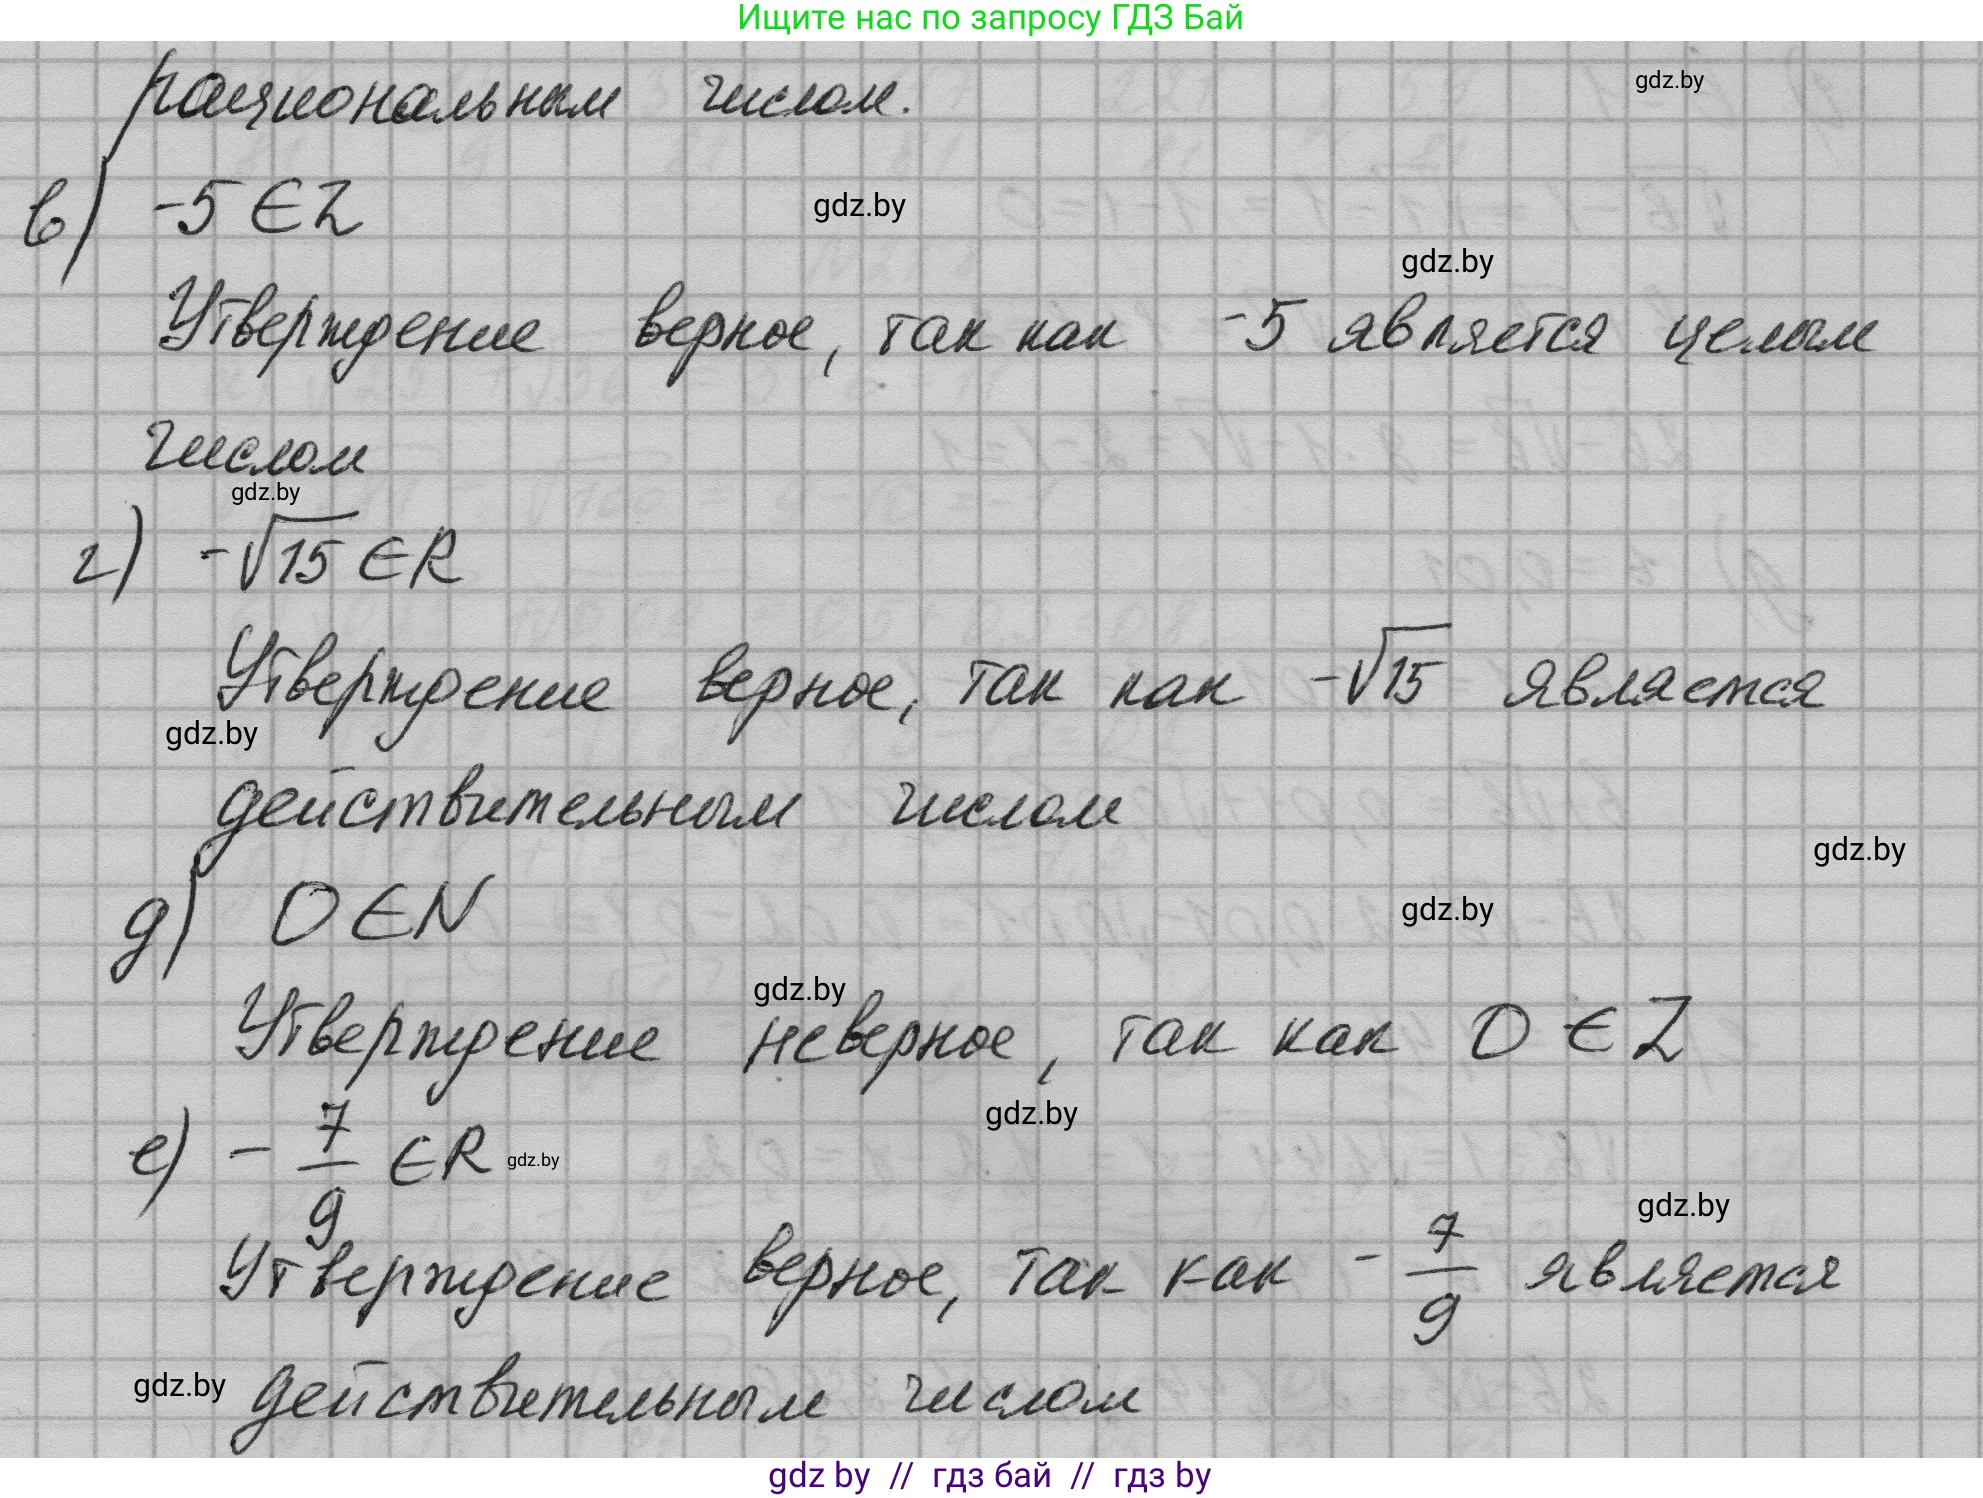 Ищите нас по запросу ГДЗ Бай
рациональным числом.
gdz.by
в) -5 ∈ Z
gdz.by
gdz.by
Утверждение верное, так как -5 является целым
числом
gdz.by
г) -√15 ∈ R
Утверждение верное, так как -√15 является
gdz.by
действительным числом
gdz.by
д) 0 ∈ N
gdz.by
gdz.by
Утверждение неверное, так как 0 ∈ Z
gdz.by
е) - 7/9 ∈ R
gdz.by
gdz.by
Утверждение верное, так как - 7/9 является
gdz.by
действительным числом
gdz by // гдз бай // гдз by